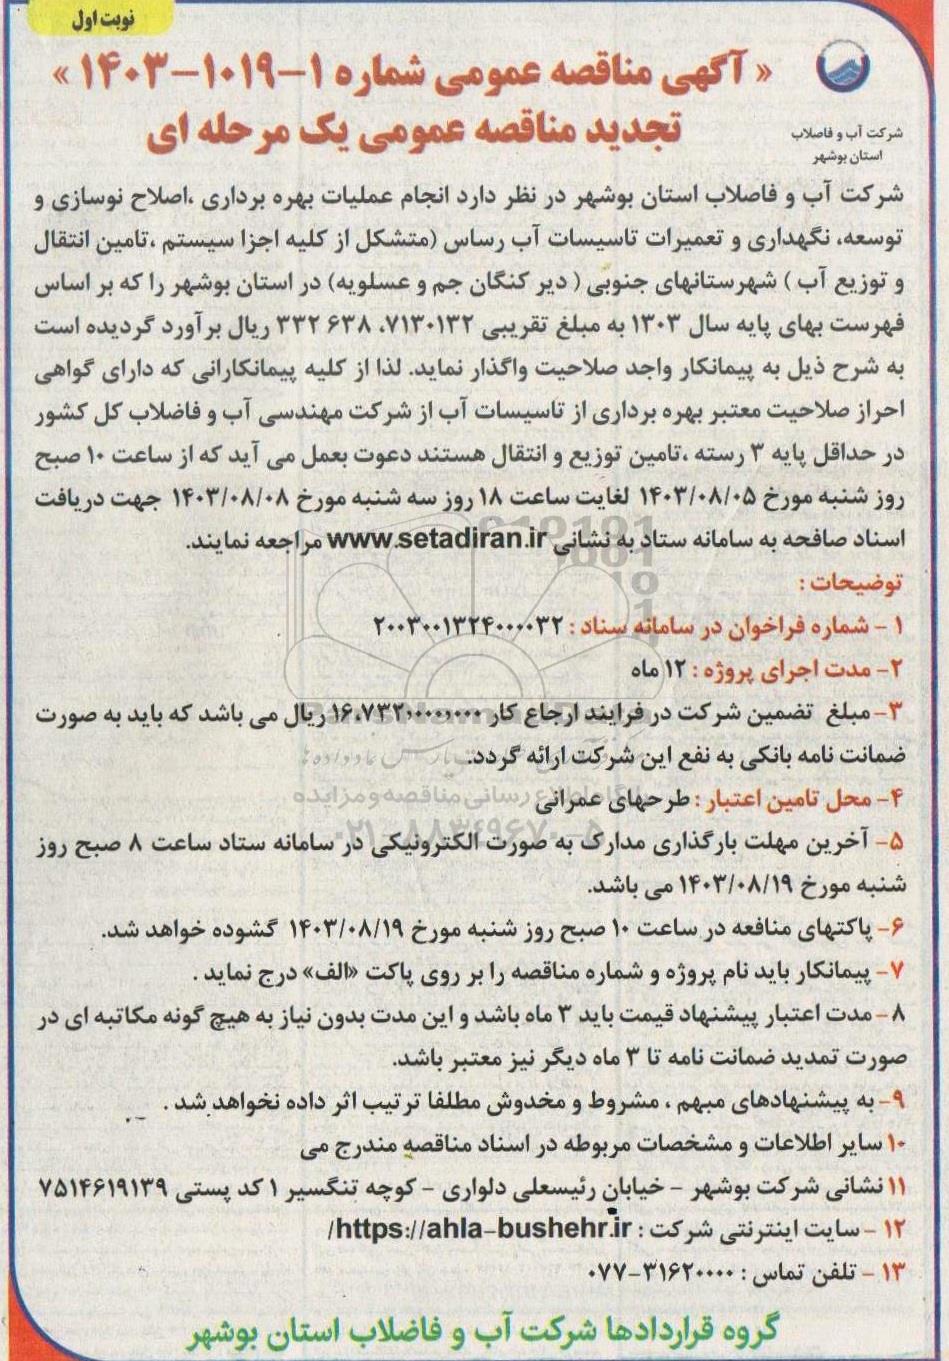 نوبت اول
« آگهی مناقصه عمومی شماره ۱-۱۰۱۹-۱۴۰۳ »
تجدید مناقصه عمومی یک مرحله ای
شرکت آب و فاضلاب
استان بوشهر
شرکت آب و فاضلاب استان بوشهر در نظر دارد انجام عملیات بهره برداری ،اصلاح نوسازی و
توسعه، نگهداری و تعمیرات تاسیسات آب رساس (متشکل از کلیه اجزا سیستم ،تامین انتقال
و توزیع آب ) شهرستانهای جنوبی ( دیر کنگان جم و عسلویه) در استان بوشهر را که بر اساس
فهرست بهای پایه سال ۱۳۰۳ به مبلغ تقریبی ۷۱۳۰۱۳۲، ۶۳۸ ۳۳۲ ریال برآورد گردیده است
به شرح ذیل به پیمانکار واجد صلاحیت واگذار نماید. لذا از کلیه پیمانکارانی که دارای گواهی
احراز صلاحیت معتبر بهره برداری از تاسیسات آب از شرکت مهندسی آب و فاضلاب کل کشور
در حداقل پایه ۳ رسته ،تامین توزیع و انتقال هستند دعوت بعمل می آید که از ساعت ۱۰ صبح
روز شنبه مورخ ۱۴۰۳/۰۸/۰۵ لغایت ساعت ۱۸ روز سه شنبه مورخ ۱۴۰۳/۰۸/۰۸ جهت دریافت
اسناد صافحه به سامانه ستاد به نشانی www.setadiran.ir مراجعه نمایند.
توضیحات :
۱ - شماره فراخوان در سامانه سناد : ۲۰۰۳۰۰۱۳۲۴۰۰۰۰۳۲
۲- مدت اجرای پروژه : ۱۲ ماه
۳- مبلغ تضمین شرکت در فرایند ارجاع کار ریال می باشد که باید به صورت
ضمانت نامه بانکی به نفع این شرکت ارائه گردد.
پایگاه اطلاع رسانی مناقصه و مزایده
۴- محل تامین اعتبار : طرحهای عمرانی
۰۲۱-۸۸۳۴۹۶۷۰-۵
۵- آخرین مهلت بارگذاری مدارک به صورت الکترونیکی در سامانه ستاد ساعت ۸ صبح روز
شنبه مورخ ۱۴۰۳/۰۸/۱۹ می باشد.
۶- پاکتهای منافعه در ساعت ۱۰ صبح روز شنبه مورخ ۱۴۰۳/۰۸/۱۹ گشوده خواهد شد.
۷- پیمانکار باید نام پروژه و شماره مناقصه را بر روی پاکت «الف» درج نماید .
۸- مدت اعتبار پیشنهاد قیمت باید ۳ ماه باشد و این مدت بدون نیاز به هیچ گونه مکاتبه ای در
صورت تمدید ضمانت نامه تا ۳ ماه دیگر نیز معتبر باشد.
۹- به پیشنهادهای مبهم ، مشروط و مخدوش مطلفا ترتیب اثر داده نخواهد شد .
۱۰ سایر اطلاعات و مشخصات مربوطه در اسناد مناقصه مندرج می
۱۱ نشانی شرکت بوشهر - خیابان رئیسعلی دلواری - کوچه تنگسیر ۱ کد پستی ۷۵۱۴۶۱۹۱۳۹
۱۲ - سایت اینترنتی شرکت : https://ahla-bushehr.ir/
۱۳ - تلفن تماس : ۳۱۶۲۰۰۰۰-۰۷۷
گروه قراردادها شرکت آب و فاضلاب استان بوشهر